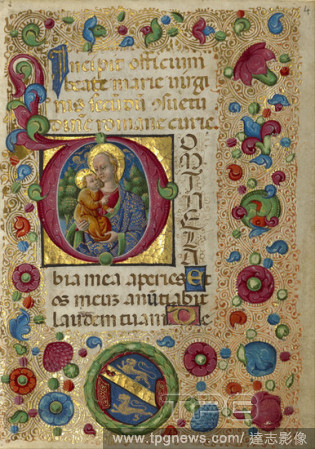 4
Incipit officium
beate marie virgi
nis scdm osuetu
dine romane curie.
DOMINE LA
bia mea aperies Et
os meuz anutiabit
laudem tuam De
TPG
www.tpgnews.com/ 達志影像